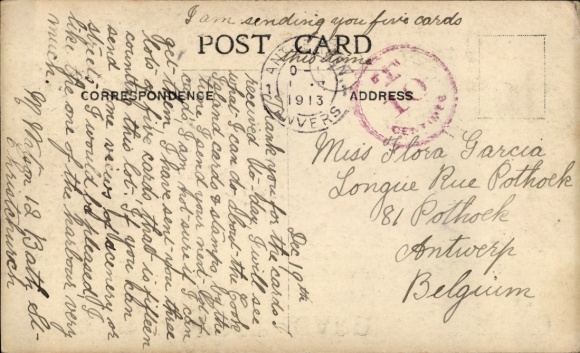 I am sending you five cards
this time
POST CARD
CORRESPONDENCE
ADDRESS
ANVERS
1913
T
10
CENTIMES
Dec 19th
Thank you for the cards I
received to-day. I will see
what I can do about the Cook
Island cards & stamps by the
time I send your next lot of
cards, I am not sure if I can
get them. I have sent you three
lots of five cards that is fifteen
counting this lot. If you can
send some views of scenery or
streets I would be pleased, I
like the one of the harbour very
much.
M Wilson 12 Bath St-
Christchurch
Miss Flora Garcia
Longue Rue Pothoek
81 Pothoek
Antwerp
Belgium